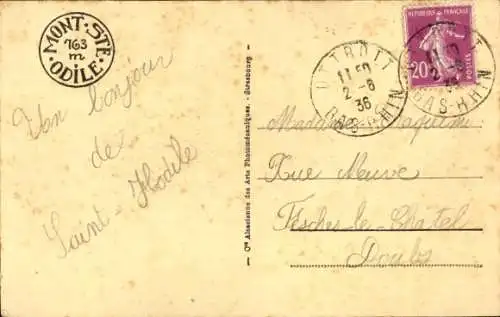 MONT STE
763
m
ODILE
Un bonjour
de
Saint-Hodile
Cie Alsacienne des Arts Photomécaniques. - Strasbourg
RÉPUBLIQUE FRANÇAISE
20c
POSTES
OTTROTT
11 50
2-6
36
BAS-RHIN
2-6
36
BAS-RHIN
Madame Jaquin
Rue Neuve
Fesches-le-Chatel
Doubs